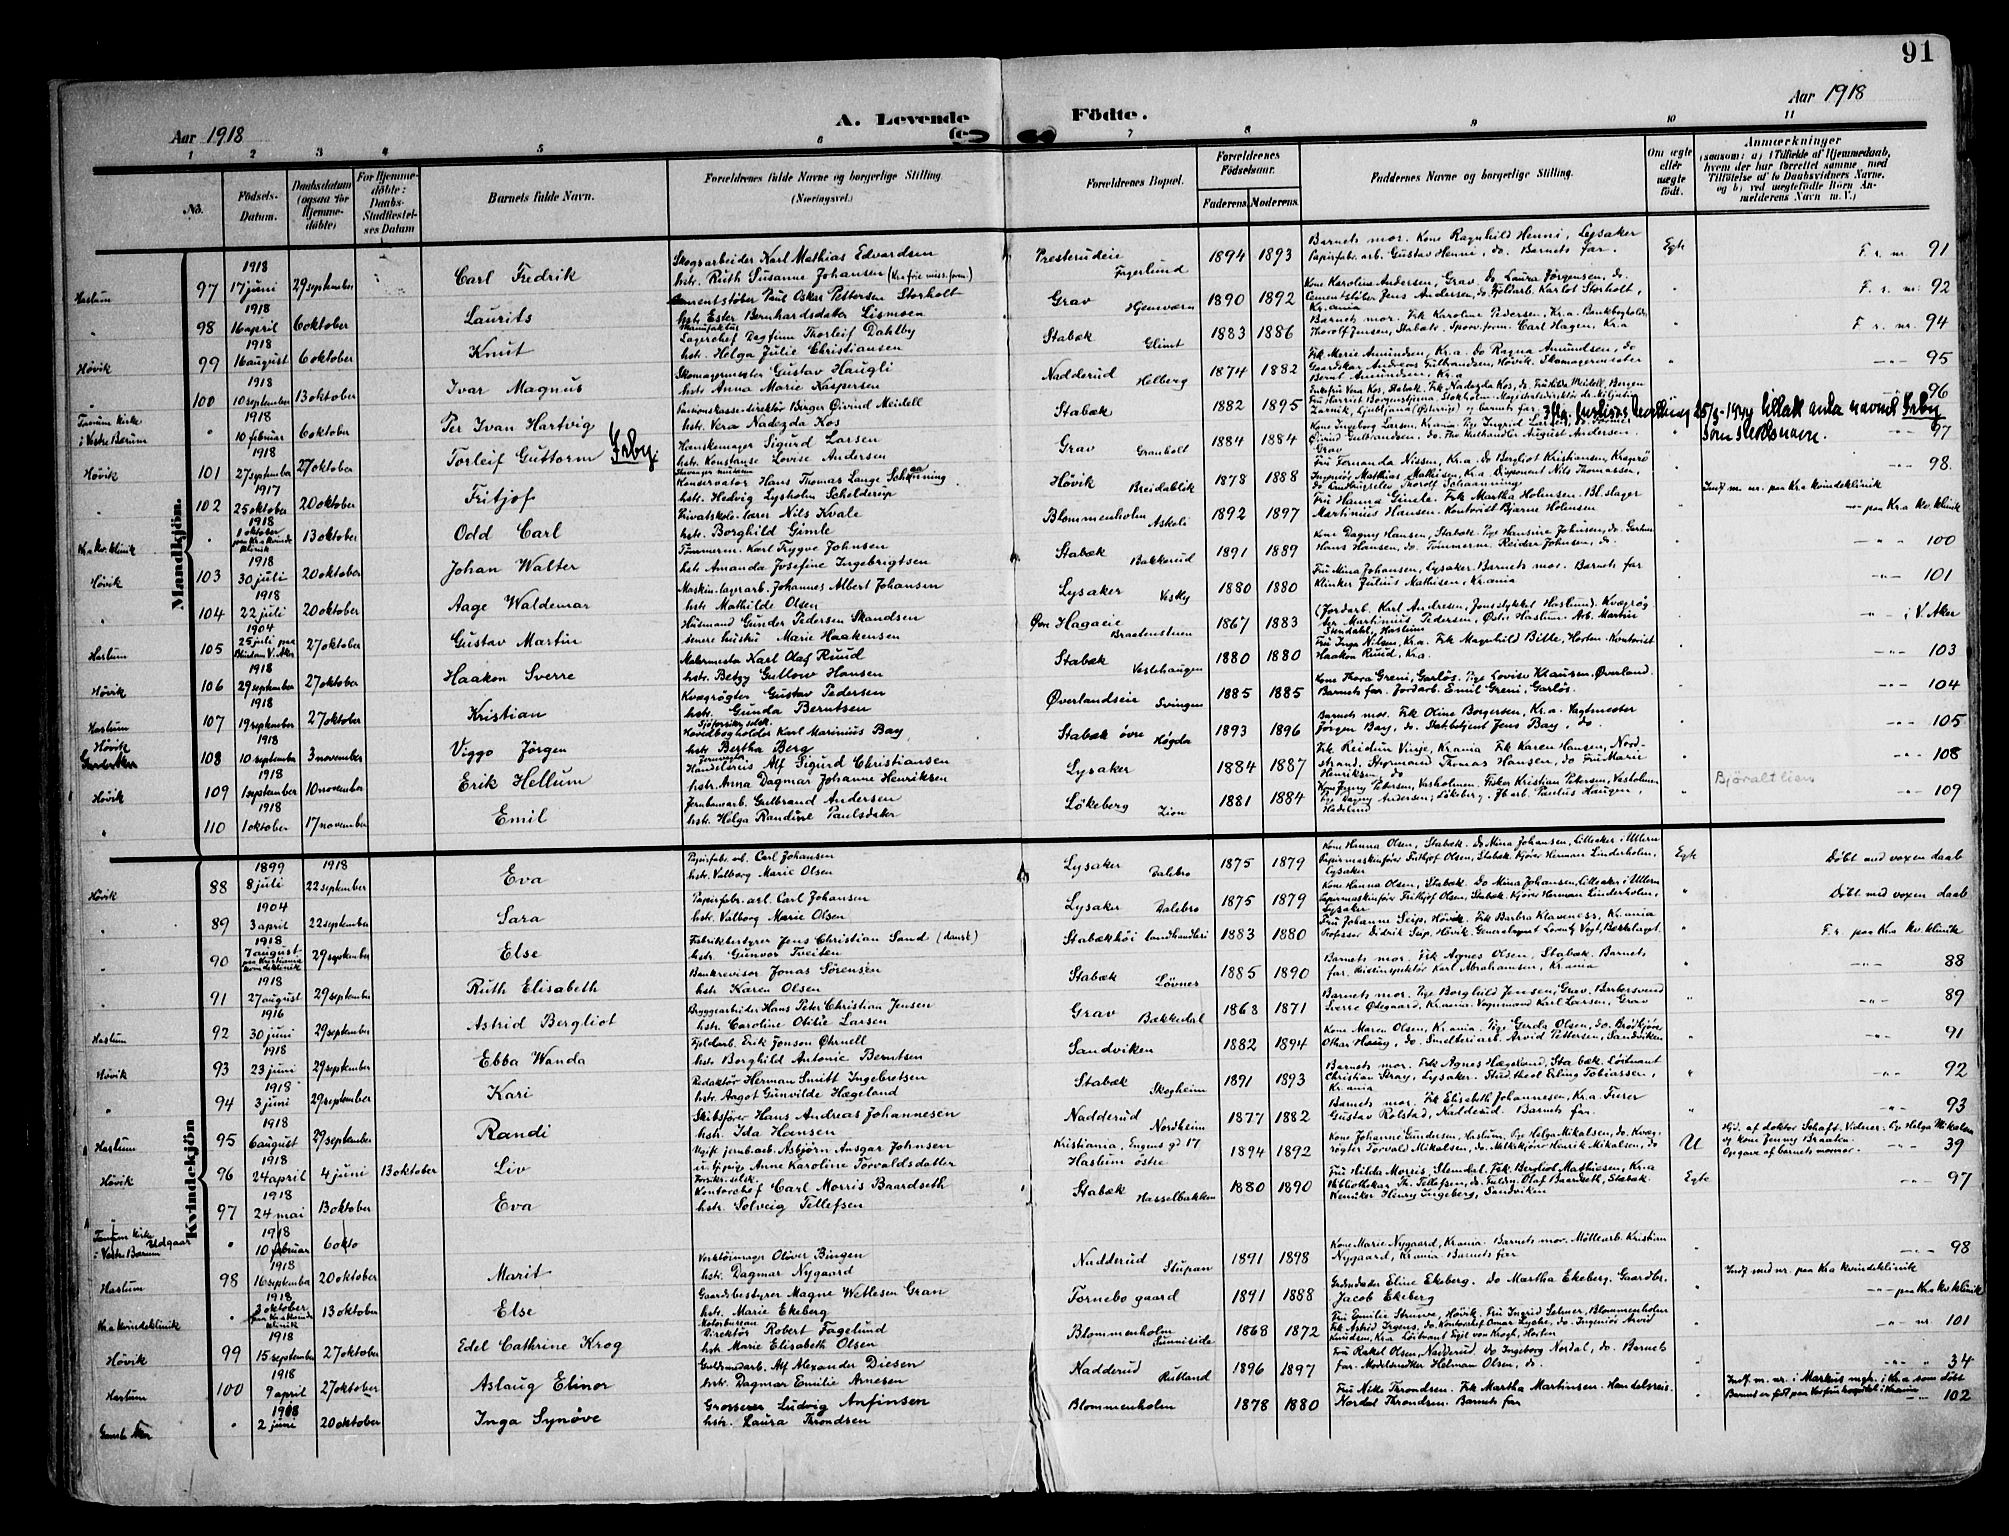 91
Aar 1918
A. Levende Födte.
Aar 1918
1 2 3 4 5 6 7 8 9 10 11
No.
Födsels-Datum.
Daabsdatum (ogsaa for Hjemmedöbte)
For Hjemmedöbte: Daabs-Stadfæstelses Datum
Barnets fulde Navn.
Forældrenes fulde Navne og borgerlige Stilling.
(Næringsvei.)
Forældrenes Bopæl.
Forældrenes Födselsaar.
Faderens. Moderens.
Faddernes Navne og borgerlige Stilling.
Om ægte eller uægte födt.
Anmærkninger
(saasom: a) i Tilfælde af Hjemmedaab, hvem der har forrettet samme, med Tilföielse af to Daabsvidners Navne, og b) ved uægtefödte Börn Anmelderens Navn m. V.)
Mandkjön.
Haslum 97 1918 17 juni 29 september Carl Fredrik
Skogsarbeider Karl Mathias Edvardsen
hstr. Ruth Susanne Johansen
Presterudeie Fagerlund 1894 1893
Barnets mor. Kone Ragnhild Henni, Lysaker
Papirfabr. arb. Gustav Henni, do. Barnets far.
Egte F. r. nr. 91
" 98 1918 16 april 6 oktober Laurits
Cementstøber Paul Oskar Pettersen Storholt
hstr. Ester Bernhardsdater Lismoen
Grav Hjemværn 1890 1892
Kone Karoline Andersen, Grav, do Laura Jörgensen, do.
Cementstøber Jens Andersen, do, Fjeldarb. Karlot Storholt,
Kr.ania
F. r. nr. 92
Høvik 99 1918 16 august 6 oktober Knut
Lagerchef Dagfinn Thorleif Dahlby
hstr. Helga Julie Christiansen
Stabæk Glimt 1883 1886
Barnets mor. Frk Karoline Pedersen, Kr.a. Bankbogholder
Thorolf Jensen, Stabæk. Carl Hagen, Kr.a
F. r. nr. 94
" 100 1918 10 september 13 oktober Ivar Magnus
Skomagermester Gustav Haugli
hstr. Anna Marie Kaspersen
Nadderud Helberg 1874 1882
Frk Marie Amundsen, Kr.a. do Ragna Amundsen, do
Gaardskar Andreas Gulbrandsen, Høvik. Skomagermester
Bernt Amundsen, Kr.a
95
Tanum Kirke i Vestre Bærum 1918 10 februar 6 oktober Per Ivan Hartvig
Pensionskassedirektør Birger Øivind Meidell
hstr. Vera Nadezda Kos
Stabæk 1882 1895
96
Høvik 101 1918 27 september 27 oktober Torleif Guttorm Erby.
Hanskemager Sigurd Larsen
hstr. Konstanse Lovise Andersen
Grav Granholt 1884 1884
25/3-1944 tillatt anta navnet Erby
som slektsnavn.
97
" 102 1917 25 oktober 20 oktober Fritjof
Stavanger museum
Konservator Hans Thomas Lange Schaanning
hstr. Hedvig Lysholm Schelderup
Høvik Breidablik 1878 1888
98.
Kr.a kv. klinik 1918 1 oktober paa Kr.a Kvindeklinik 13 oktober Odd Carl
Privatskole-lærer Nils Kvale
hstr. Borghild Gimle
Blommenholm Askeli 1892 1897
Fru Hanna Gimle. Frk Martha Holmsen. Bl. slager
Martinius Hansen. Kontorist Bjarne Holmsen
Indf. m. nr. paa Kr.a kvindeklinik
paa Kr.a kv. klinik
Høvik 103 1918 30 juli 20 oktober Johan Walter
Tømmerm. Karl Trygve Johnsen
hstr Amanda Josefine Ingebrigtsen
Stabæk Bakkerud 1891 1889
Kone Dagny Hansen, Stabæk. Pige Hansine Johnsen, do. Gartner
Hans Hansen, do. Tømmerm. Reidar Johnsen, do.
100
" 104 1918 22 juli 20 oktober Aage Waldemar
Maskin-lagerarb. Johannes Albert Johansen
hstr Mathilde Olsen
Lysaker Vestby 1880 1880
Fru Mina Johansen, Lysaker. Barnets mor. Barnets far
Klinker Julius Mathisen, Kr.ania
101
Haslum 105 1904 25 juli 27 oktober Gustav Martin
Husmand Gunder Pedersen Skandsen
senere hustru Marie Haakensen
Øvre Hagaeie Braatenstuen 1867 1883
i V. Aker
Høvik 106 1918 29 september 27 oktober Haakon Sverre
Malermester Karl Olaf Ruud
hstr. Betzy Gutlow Hansen
Stabæk Veslehaugen 1880 1880
Fru Inga Nilsen, Kr.a. Frk Magnhild Bitte, Horten. Kontorist
Haakon Ruud, Kr.a.
103
Haslum 107 1918 19 september 27 oktober Kristian
Kvægrøgter Gustav Pedersen
hstr. Gunda Berntsen
Øverlandseie Svingen 1885 1885
Kone Thora Greni, Garløs. Pige Lovise Knausen, Øverland.
Barnets far. Jordarb. Emil Greni, Garløs.
104
Høvik 108 1918 10 september 3 november Viggo Jörgen
Sjøforsikr. selsk.
Hovedbogholder Karl Marinius Bay
hstr. Bertha Berg
Stabæk øvre Høgda 1893 1896
Barnets mor. Frk Oline Borgersen, Kr.a. Vagtmester
Jørgen Bay, do. Statsbetjent Jens Bay, do.
105
Høvik 109 1918 1 september 10 november Erik Hellum
Handelsreis Alf Sigurd Christiansen
hstr. Anna Dagmar Johanne Henriksen
Lysaker 1884 1887
108
Bjøraltlien
" 110 1918 1 oktober 17 november Emil
Jernbanearb. Gulbrand Andersen
hstr. Helga Randine Paulsdater
Løkeberg Zion 1881 1884
109
Kvindekjön
Høvik 88 1899 8 juli 1918 22 september Eva
Papirfabr. arb. Carl Johansen
hstr. Valborg Marie Olsen
Lysaker Dalebro 1875 1879
Kone Hanna Olsen, Stabæk. do Mina Johansen, Lilleaker i Ullern
Papirmaskinfører Fritjof Olsen, Stabæk. Kjører Herman Linderholm,
Lysaker
Egte Døbt med voxen daab
" 89 1904 3 april 22 september Sara
Papirfabr. arb. Carl Johansen
hstr. Valborg Marie Olsen
Lysaker Dalebro 1875 1879
Kone Hanna Olsen, Stabæk. do Mina Johansen, Lilleaker i Ullern
Papirmaskinfører Fritjof Olsen, Stabæk. Kjører Herman Linderholm,
Lysaker
" Døbt med voxen daab
" 90 1918 7 august paa Kristiania kvindeklinik 29 september Else
Fabrikbestyrer Jens Christian Sand (dansk)
hstr. Gunvor Tveiten
Stabækhøi Landhandleri 1883 1880
Fru Johanne Seip, Høvik. Frk Barbra Klaveness, Kr.ania
Professor Didrik Seip, Høvik. Generalagent Lorentz Vogt, Bekkelaget.
F. r. paa Kr.a kv. klinik
" 91 1918 27 august 29 september Ruth Elisabeth
Bankrevisor Jonas Sörensen
hstr. Karen Olsen
Stabæk Løvnes 1885 1890
Barnets mor. Frk Agnes Olsen, Stabæk. Barnets
far. Karl Abrahamsen, Kr.ania
88
Haslum 92 1916 30 juni 29 september Astrid Bergliot
Bryggearbeider Hans Peter Christian Jensen
hstr. Caroline Otilie Larsen
Grav Bækkedal 1868 1871
Barnets mor. Pige Borghild Jensen, Grav. Barbersvend
Sverre Ødegaard, Kr.ania. Vognmand Karl Larsen, Grav
89
Høvik 93 1918 23 juni 29 september Ebba Wanda
Fjeldarb. Erik Jonson Øhrnell
hstr. Borghild Antonie Berntsen
Sandviken 1882 1894
Kone Maren Olsen, Kr.ania. Pige Gerda Olsen, do. Brødkjører
Othar Haug, do. Smelteriarb. Arvid Pettersen, Sandviken
91
" 94 1918 3 juni 29 september Kari
Redaktør Herman Smitt Ingebretsen
hstr. Aagot Gunvilde Hægeland
Stabæk Skogheim 1891 1893
Barnets mor. Frk Agnes Hægeland, Stabæk. Løitnant
Christian Stray, Lysaker. Stud. theol Erling Tobiassen,
Kr.ania
92
Haslum 95 1918 6 august 29 september Randi
Skibsfører Hans Andreas Johannesen
hstr. Ida Hansen
Nadderud Nordheim 1877 1882
Barnets mor. Frk Elisabeth Johannesen, Kr.a. Furer
Gustav Rolstad, Nadderud. Barnets far.
93
Høvik 96 1918 24 april 4 juni 13 oktober Liv
Ugift jernb.arb. Asbjörn Ansgar Johnsen
u. pige Anne Karoline Torvaldsdatter
Kristiania, Engens gd 17
Haslum østre 1894 1892
Kone Johanne Gundersen, Haslum. Pige Helga Mikalsen, do. Kvægrøgter Torvald Mikalsen, do. Melkekjører Henrik Mikalsen, do
U Hjd. af doktor Schaft. Vidner: Pige Helga Mikalsen
og kone Jenny Braaten.
Opgave af barnets mormor. 39
" 97 1918 24 mai 13 oktober Eva
Forsikr. selsk.
Kontorchef Carl Morris Baardseth
hstr. Solveig Tellefsen
Stabæk Hasselbakken 1880 1890
Fru Hilda Morris, Slemdal. Frk. Bergliot Mathiesen, Kr.a
Bibliothekar Th. Tellefsen, do. Fuldm. Olaf Baardseth, Stabæk.
Kemiker Henry Ingeberg, Sandviken
Egte 97
Tanum Kirke i Vestre Bærum Udgaar 1918 10 februar 6 okto
Haslum 98 1918 16 september 20 oktober Marit
Verktöimager Oliver Bingen
hstr. Dagmar Nygaard
Nadderud Stupan 1891 1898
Kone Marie Nygaard, Kr.ania. Barnets mor. Møllearb. Kristian
Nygaard, Kr.ania. Barnets far
98
Kr.a kvindeklinik 1918 3 oktober paa Kr.a Kvindeklinik 13 oktober Else
Gaardsbestyrer Magne Wetlesen Gran
hstr. Marie Ekeberg
Fornebo gaard 1891 1888
Eline Ekeberg. do Martha Ekeberg. Gaardbr.
Jacob Ekeberg
Indf med nr. paa Kr.a kvindeklinik
paa Kr.a kv. klinik
Høvik 99 1918 15 september 27 oktober Edel Cathrine Krog
Motorbureau
Direktør Robert Fagelund
hstr. Marie Elisabeth Olsen
Blommenholm Sunniside 1868 1872
nr. 101
Haslum 100 1918 9 april 27 oktober Aslaug Elinor
Guldsmdarb. Alf Alexander Diesen
hstr. Dagmar Emilie Arnesen
Nadderud Rutland 1896 1897
Fru Rakel Olsen, Nadderud. do Ingeborg Nordal, do. Barnets
far. Modelsnedker Helman Olsen, do.
34
Gamle Aker 1918 2 juni 20 oktober Inga Synöve
Grosserer Ludvig Anfinsen
hstr. Laura Throndsen
Blommenholm 1878 1880
Fru Nikke Throndsen. Frk Martha Martinsen. Handelsreis.
Nordal Throndsen. Barnets far
Indf. m. nr. i Markus mgh. i Kr.a som döbt
102